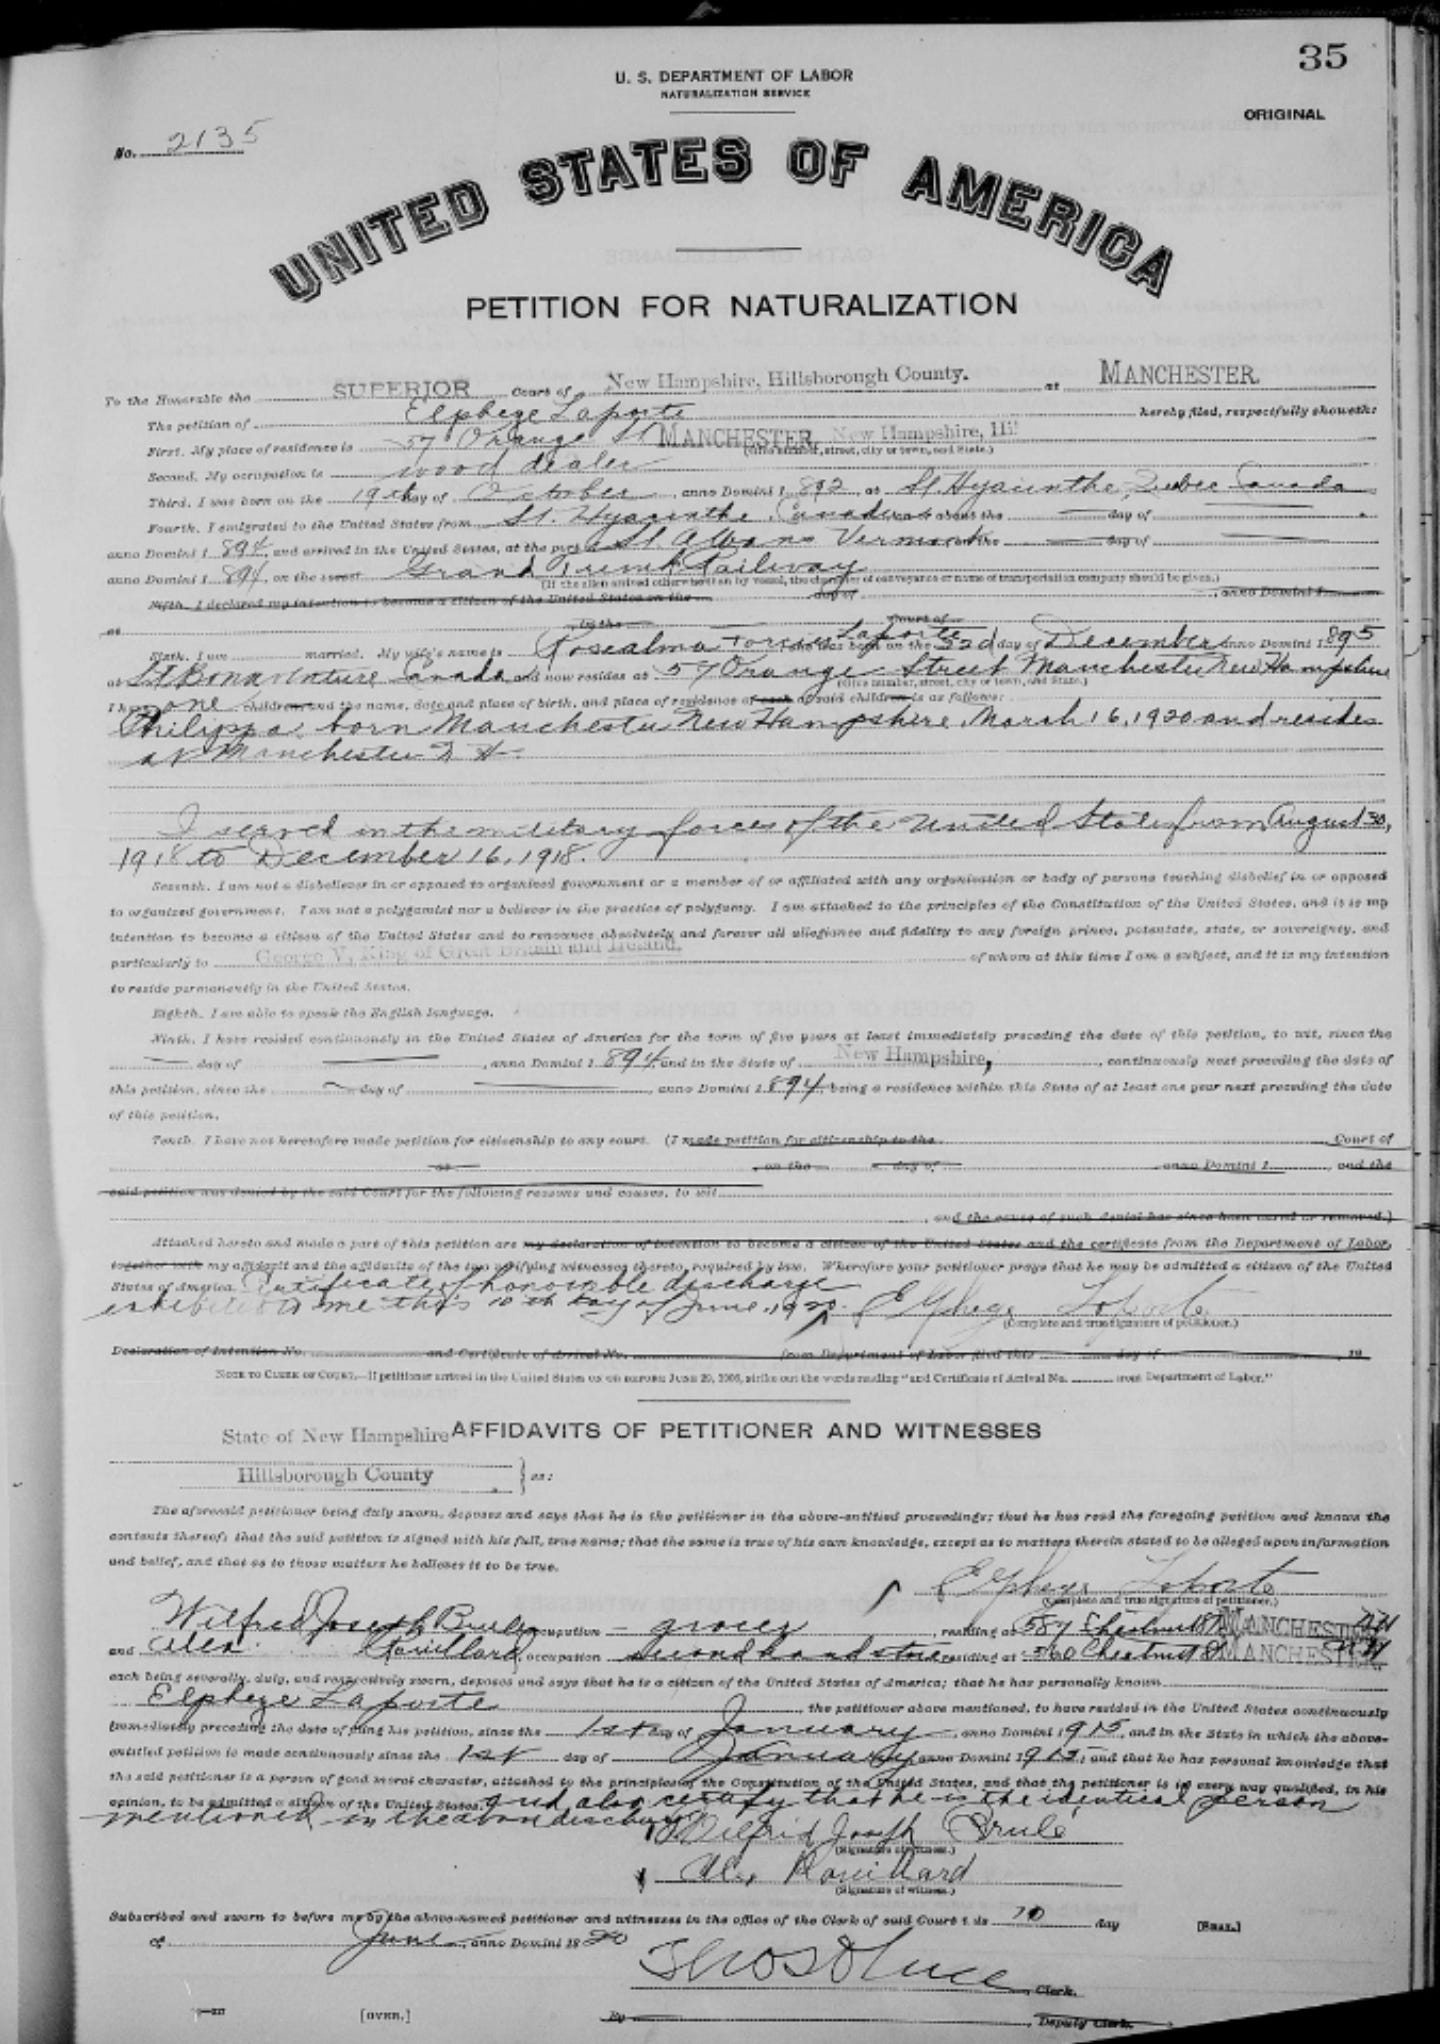 35
U. S. DEPARTMENT OF LABOR
NATURALIZATION SERVICE
ORIGINAL
No. 2135
UNITED STATES OF AMERICA
PETITION FOR NATURALIZATION
To the Honorable the SUPERIOR Court of New Hampshire, Hillsborough County. at MANCHESTER.
The petition of Elphege Laporte hereby filed, respectfully showeth:
First. My place of residence is 57 Orange St MANCHESTER, New Hampshire,
(Give number, street, city or town, and State.)
Second. My occupation is wood dealer
Third. I was born on the 19th day of October, anno Domini 1892, at St Hyacinthe, Quebec Canada
Fourth. I emigrated to the United States from St. Hyacinthe, Canada on or about the day of
anno Domini 1894, and arrived in the United States, at the port of St. Albans Vermont on the day of
anno Domini 1894, on the vessel Grand Trunk Railway
(If the alien arrived otherwise than by vessel, the character of conveyance or name of transportation company should be given.)
Fifth. I declared my intention to become a citizen of the United States on the day of, anno Domini 1
at, in the Court of
Sixth. I am married. My wife's name is Rosealma Laporte she was born on the 22d day of December anno Domini 1895
at St Bonaventure Canada and now resides at 57 Orange Street Manchester New Hampshire
(Give number, street, city or town, and State.)
I have one children and the name, date and place of birth, and place of residence of each of said children is as follows:
Philippa, born Manchester New Hampshire, March 16, 1920 and resides
at Manchester N H
I served in the military forces of the United States from August 30,
1918 to December 16, 1918.
Seventh. I am not a disbeliever in or opposed to organized government or a member of or affiliated with any organization or body of persons teaching disbelief in or opposed
to organized government. I am not a polygamist nor a believer in the practice of polygamy. I am attached to the principles of the Constitution of the United States, and it is my
intention to become a citizen of the United States and to renounce absolutely and forever all allegiance and fidelity to any foreign prince, potentate, state, or sovereignty, and
particularly to George V, King of Great Britain and Ireland, of whom at this time I am a subject, and it is my intention
to reside permanently in the United States.
Eighth. I am able to speak the English language.
Ninth. I have resided continuously in the United States of America for the term of five years at least immediately preceding the date of this petition, to wit, since the
day of, anno Domini 1894, and in the State of New Hampshire, continuously next preceding the date of
this petition, since the day of, anno Domini 1894, being a residence within this State of at least one year next preceding the date
of this petition.
Tenth. I have not heretofore made petition for citizenship to any court. (I made petition for citizenship to the Court of
at, on the day of, anno Domini 1, and the
said petition was denied by the said Court for the following reasons and causes, to wit
, and the cause of such denial has since been cured or removed.)
Attached hereto and made a part of this petition are my declaration of intention to become a citizen of the United States and the certificate from the Department of Labor,
together with my affidavit and the affidavits of the two verifying witnesses thereto, required by law. Wherefore your petitioner prays that he may be admitted a citizen of the United
States of America. Certificate of honorable discharge
exhibited to me this 10th day of June, 1920. Elphege Laporte
(Complete and true signature of petitioner.)
Declaration of Intention No. and Certificate of Arrival No. from Department of Labor filed this day of, 19
NOTE TO CLERK OF COURT.—If petitioner arrived in the United States on or before June 29, 1906, strike out the words reading "and Certificate of Arrival No. from Department of Labor."
AFFIDAVITS OF PETITIONER AND WITNESSES
State of New Hampshire
Hillsborough County } ss:
The aforesaid petitioner being duly sworn, deposes and says that he is the petitioner in the above-entitled proceedings; that he has read the foregoing petition and knows the
contents thereof; that the said petition is signed with his full, true name; that the same is true of his own knowledge, except as to matters therein stated to be alleged upon information
and belief, and that as to those matters he believes it to be true.
Elphege Laporte
(Complete and true signature of petitioner.)
Wilfred Joseph Brule, occupation grocer, residing at 587 Chestnut St MANCHESTER N H
and Alex. Rouillard, occupation second hand store residing at 560 Chestnut St MANCHESTER, N H
each being severally, duly, and respectively sworn, deposes and says that he is a citizen of the United States of America; that he has personally known
Elphege Laporte, the petitioner above mentioned, to have resided in the United States continuously
immediately preceding the date of filing his petition, since the 1st day of January, anno Domini 1915, and in the State in which the above-
entitled petition is made continuously since the 1st day of January, anno Domini 1915; and that he has personal knowledge that
the said petitioner is a person of good moral character, attached to the principles of the Constitution of the United States, and that the petitioner is in every way qualified, in his
opinion, to be admitted a citizen of the United States. and also certify that he is the identical person
mentioned in the above discharge
Wilfrid Joseph Brulé
(Signature of witness.)
Alex Rouillard
(Signature of witness.)
Subscribed and sworn to before me by the above-named petitioner and witnesses in the office of the Clerk of said Court this 10 day [SEAL.]
of June, anno Domini 1920
Thos D Luce, Clerk.
[OVER.] By, Deputy Clerk.